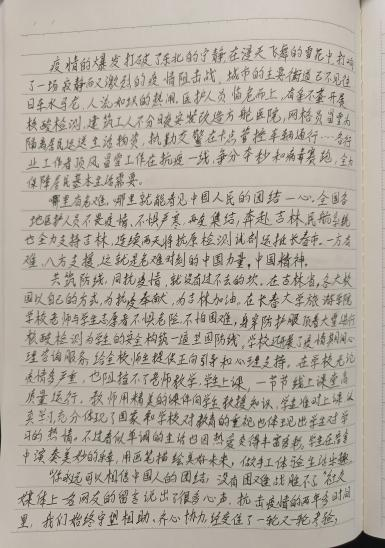 疫情的爆发打破了东北的宁静,在漫天飞舞的雪花中,打响
了一场寂静而又激烈的疫情阻击战。城市的主要街道已不见往
日车水马龙,人流如织的热闹。医护人员临危而上,有条不紊开展
核酸检测,建筑工人不分昼夜安装改造方舱医院,网格员当里为
隔离居民运送生活物资,执勤交警在卡点管控车辆通行……各行
业工作者顶风冒雪工作在抗疫一线,争分夺秒和病毒赛跑,全力
保障居民基本生活需要。
哪里有危难,哪里就能看见中国人民的团结一心。全国各
地医护人员不畏疫情,不惧严寒,再度集结,奔赴吉林,民航系统
也全力支持吉林,连续两天将抗原检测试剂运抵长春市。一方有
难,八方支援,这就是危难时刻的中国力量,中国精神。
共筑防线,同抗疫情,就没有过不去的坎。在吉林省,各大校
园以自己的方式,为抗疫奉献,为吉林加油。在长春大学旅游学院
学校老师与学生志愿者不惧危险,不怕困难,身穿防护服顶着大雪进行
核酸检测,为学生的安全构筑一道卫国防线,学校还开展了疫情期间心
理咨询服务,给全校师生提供正向引导和心理支持。在学校无论
疫情多严重,也阻挡不了老师教学,学生上课,一节节线上课堂高
质量运行,教师用精美的课件向学生教授知识,学生准时上课认
真学习,充分体现了国家和学校对教育的重视也体现出学生对学
习的热情。不过看似单调的生活也因热爱变得丰富多彩,学生在宿舍
中演奏美妙的乐章,用画笔描绘美好未来,做手工体验生活乐趣。
“你永远可以相信中国人的团结,没有困难战胜不了”社交
媒体上一名网友的留言说出了很多心声,抗击疫情的两年多时间
里,我们始终守望相助,齐心协力,经受住了一轮又一轮考验,